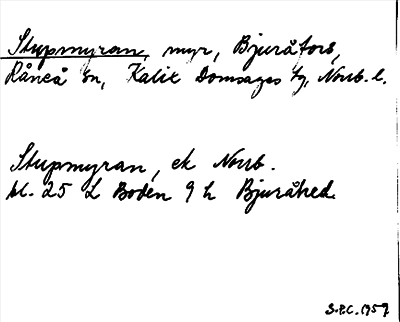 Stupmyran, myr, Bjuråfors,
Råneå sn, Kalix Domsagas tg, Norrb. l.
Stupmyran, ek Norrb.
bl. 25 L Boden 9 h Bjuråhed.
S.P.C. 1959